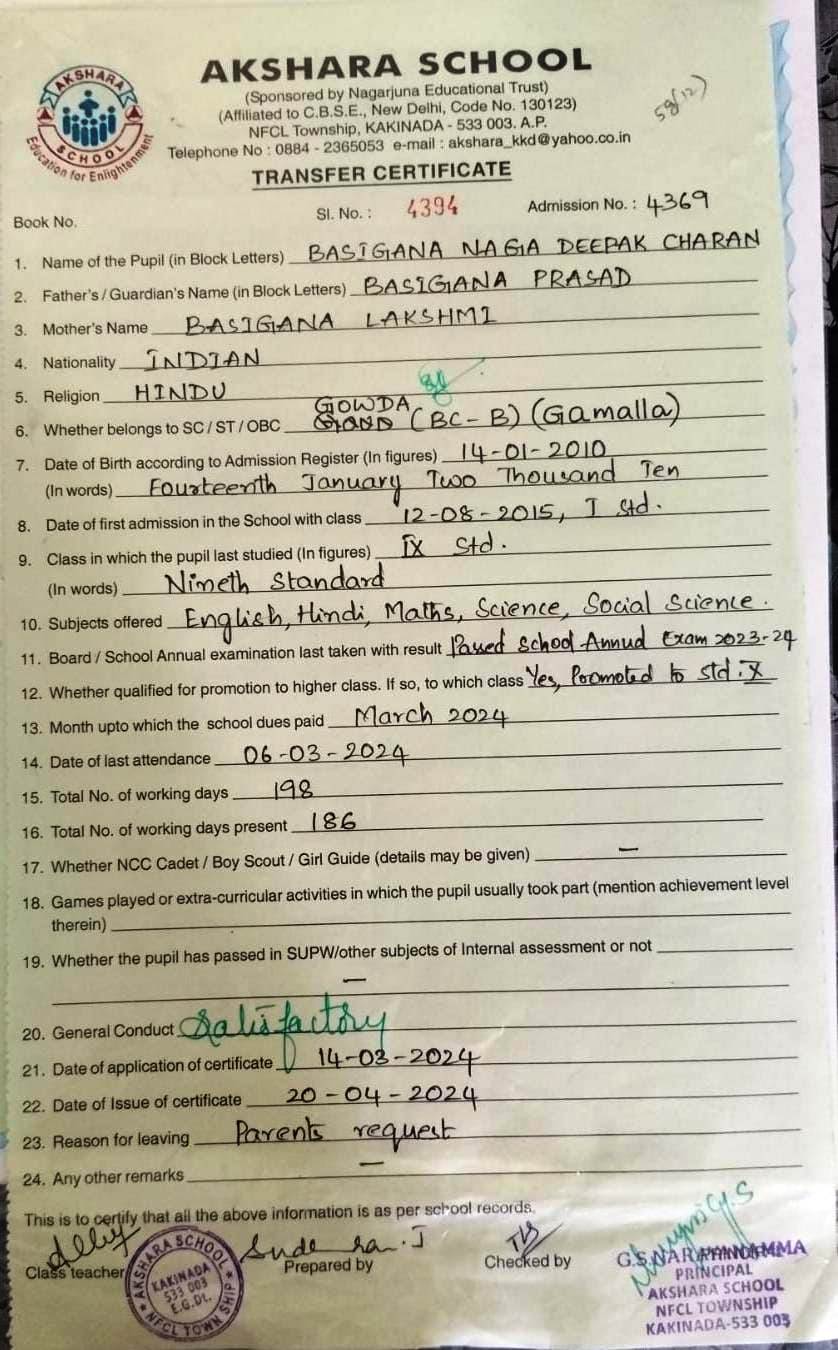 AKSHARA SCHOOL
(Sponsored by Nagarjuna Educational Trust)
(Affiliated to C.B.S.E., New Delhi, Code No. 130123)
NFCL Township, KAKINADA - 533 003. A.P.
Telephone No : 0884 - 2365053 e-mail : akshara_kkd@yahoo.co.in
AKSHARA
SCHOOL
Education for Enlightenment
TRANSFER CERTIFICATE
Book No. Sl. No. : 4394 Admission No. : 4369
1. Name of the Pupil (in Block Letters) BASIGANA NAGA DEEPAK CHARAN
2. Father's / Guardian's Name (in Block Letters) BASIGANA PRASAD
3. Mother's Name BASIGANA LAKSHMI
4. Nationality INDIAN
5. Religion HINDU
6. Whether belongs to SC / ST / OBC GOWDA (BC-B) (Gamalla)
7. Date of Birth according to Admission Register (In figures) 14-01-2010
(In words) Fourteenth January Two Thousand Ten
8. Date of first admission in the School with class 12-08-2015, I Std.
9. Class in which the pupil last studied (In figures) IX Std.
(In words) Nineth Standard
10. Subjects offered English, Hindi, Maths, Science, Social Science.
11. Board / School Annual examination last taken with result Passed School Annual Exam 2023-24
12. Whether qualified for promotion to higher class. If so, to which class Yes, Promoted to Std. X
13. Month upto which the school dues paid March 2024
14. Date of last attendance 06-03-2024
15. Total No. of working days 198
16. Total No. of working days present 186
17. Whether NCC Cadet / Boy Scout / Girl Guide (details may be given) –
18. Games played or extra-curricular activities in which the pupil usually took part (mention achievement level
therein)
19. Whether the pupil has passed in SUPW/other subjects of Internal assessment or not
–
20. General Conduct Satisfactory
21. Date of application of certificate 14-03-2024
22. Date of Issue of certificate 20-04-2024
23. Reason for leaving Parents request
24. Any other remarks –
This is to certify that all the above information is as per school records.
Class teacher Prepared by Checked by
AKSHARA SCHOOL
KAKINADA
533 003
E.G.Dt.
NFCL TOWNSHIP
PRINCIPAL
AKSHARA SCHOOL
NFCL TOWNSHIP
KAKINADA-533 003